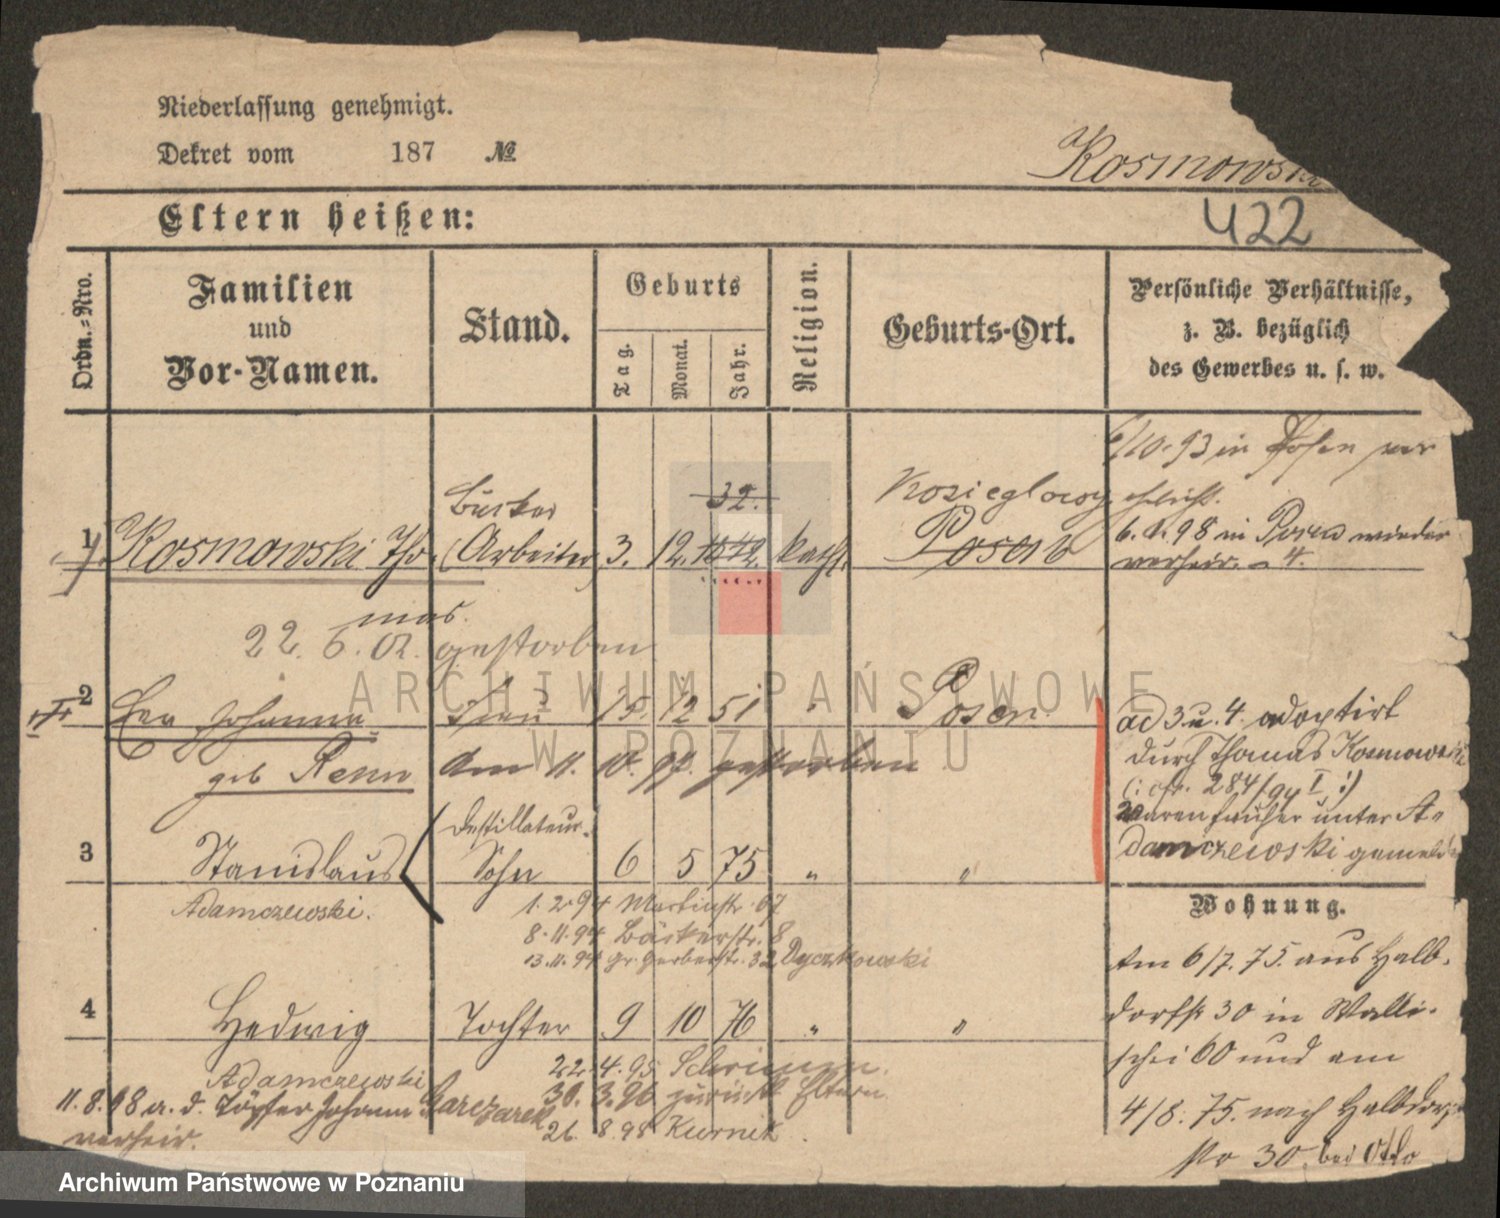 Niederlassung genehmigt.
Dekret vom 187 №
Kosmowski
Eltern heißen:
422
Ordn.=Nro.
Familien
und
Vor-Namen.
Stand.
Geburts
Tag.
Monat.
Jahr.
Religion.
Geburts-Ort.
Persönliche Verhältnisse,
z. B. bezüglich
des Gewerbes u. s. w.
10.93 in Posen ver
ehelicht.
32.
Kozieglowy
1 Kosmowski Tho
mas. (Arbeiter) 3. 12. 42. kath. Posen
6. 98 in Posen wieder
verheir. 4.
22. 6. 02. gestorben
2 Johanna Frau 15. 12 51 " Posen
geb Renn am 11. 10. 97. gestorben
ad 3 u. 4. adoptirt
durch Thomas Kosmowski
(: cfr. 284/94 I :)
waren früher unter A-
damczewski gemeldet
Destillateur.
3 Stanislaus Sohn 6 5 75 " "
Adamczewski.
1. 2. 94 Martinstr. 67
8. 11. 94 Bäckerstr. 8
13. 11. 94 gr. Gerberstr. 32 Dyczkowski
Wohnung.
Am 6/7. 75. aus Halb-
dorfstr 30 in Walli-
schei 60 und am
4/8. 75. nach Halbdorf
No 30. bei Otto
4 Hedwig Tochter 9 10 76 " "
Adamczewski
22. 4. 95 Schrimm.
30. 3. 96 zurück Eltern
26. 8. 98 Kurnik.
11. 8. 98 a. d. Töpfer Johann Garczarek
verheir.
ARCHIWUM PAŃSTWOWE
W POZNANIU
Archiwum Państwowe w Poznaniu